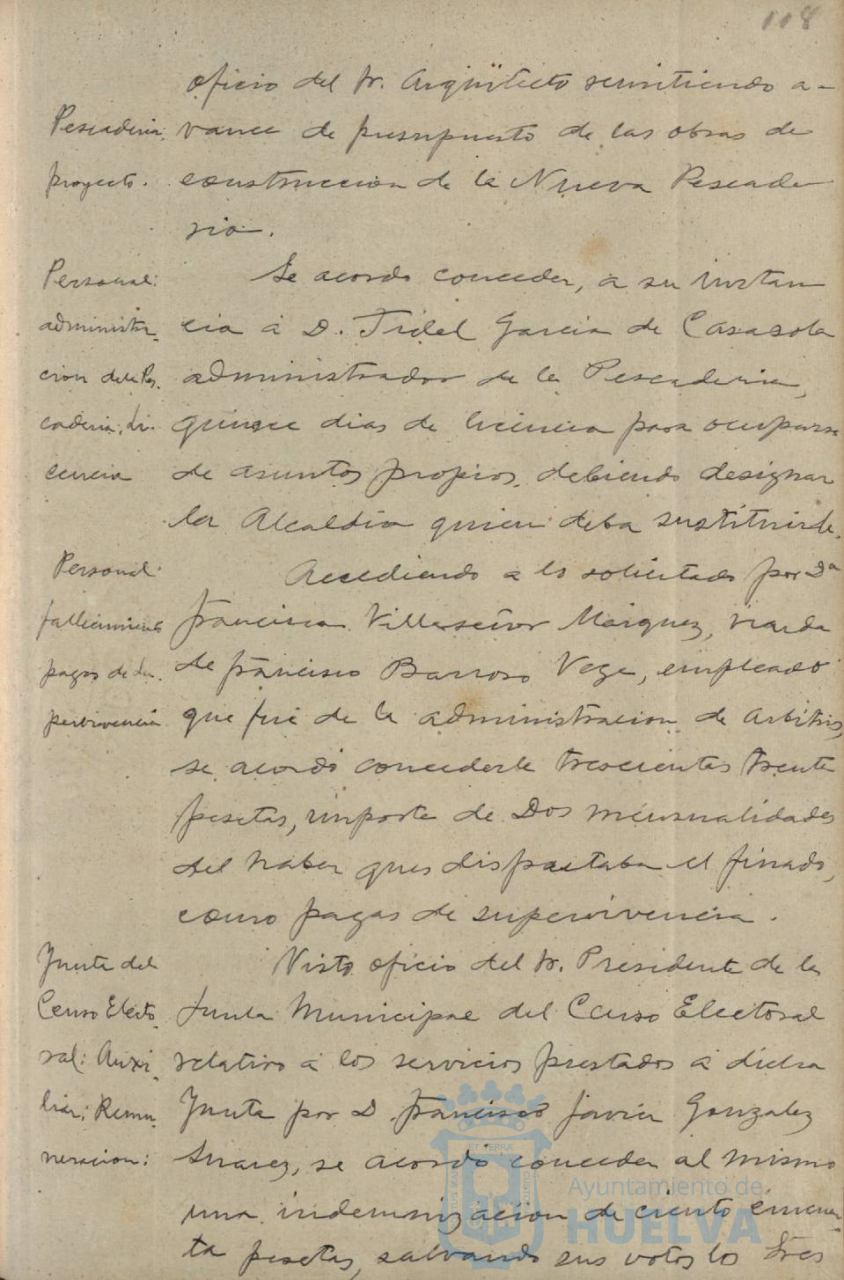 118
oficio del Sr. Arqüitecto remitiendo a-
vance de presupuesto de las obras de
construccion de la Nueva Pescade
ria.
Pescaderia.
proyecto.
Se acordo conceder, a su instan
cia a D. Fidel Garcia de Casasola
administrador de la Pescaderia,
quince dias de licencia para ocuparse
de asuntos propios, debiendo designar
la Alcaldia quien deba sustituirle.
Personal:
administra-
cion de la Pes.
caderia. Li-
cencia
Accediendo a lo solicitado por Dª
Francisca Villaseñor Marquez, viuda
de Francisco Barroso Vega, empleado
que fué de la administracion de Arbitrios,
se acordó concederle trescientas trenta
pesetas, importe de Dos mensualidades
del haber que disfrutaba el finado,
como pagas de supervivencia.
Personal:
fallecimiento
pagas de Su-
pervivencia
Visto oficio del Sr. Presidente de la
Junta Municipal del Censo Electoral
relativo a los servicios prestados a dicha
Junta por D. Francisco Javier Gonzalez
Suarez, se acordo conceder al mismo
una indemnizacion de ciento cincuen
ta pesetas, salvando sus votos los tres
Junta del
Censo Electo-
ral: Auxi-
liar: Remu-
neracion:
Ayuntamiento de
HUELVA